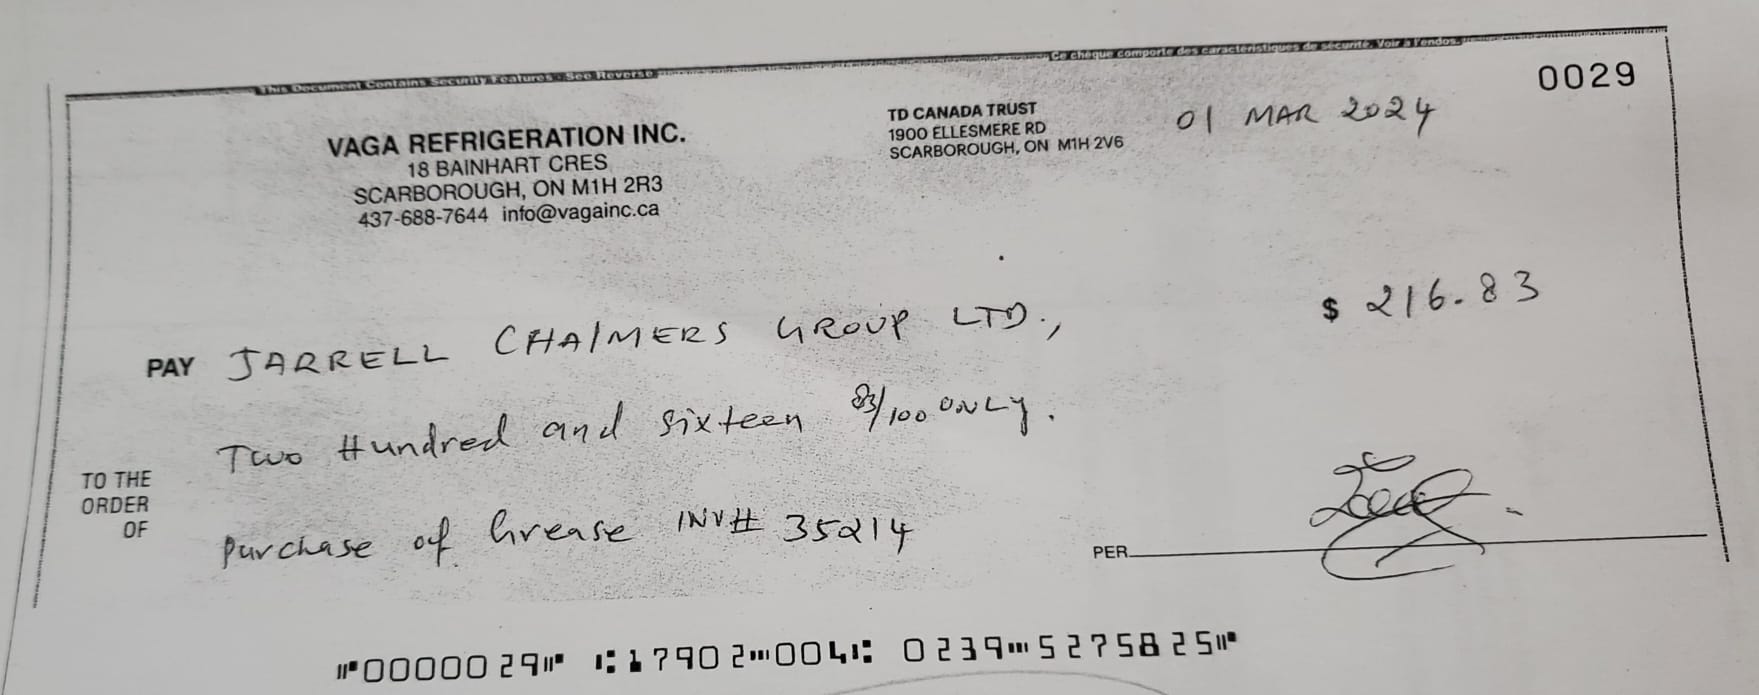 This Document Contains Security Features - See Reverse
Ce chèque comporte des caractéristiques de sécurité. Voir à l'endos.
0029
VAGA REFRIGERATION INC.
18 BAINHART CRES
SCARBOROUGH, ON M1H 2R3
437-688-7644 info@vagainc.ca
TD CANADA TRUST
1900 ELLESMERE RD
SCARBOROUGH, ON M1H 2V6
01 MAR 2024
PAY JARRELL CHALMERS GROUP LTD.,
$ 216.83
Two Hundred and sixteen 83/100 ONLY.
TO THE
ORDER
OF
purchase of Grease INV# 35214
PER
⑈0000029⑈ ⑆17902⑉004⑆ 0239⑉5275825⑈